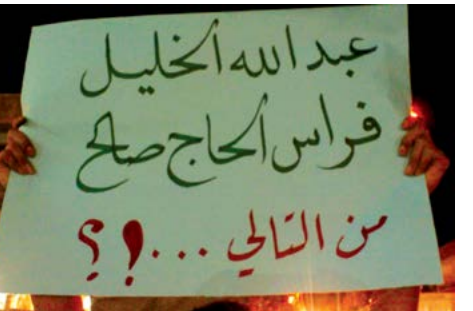 عبد الله الخليل
فراس الحاج صالح
من التالي ...!؟